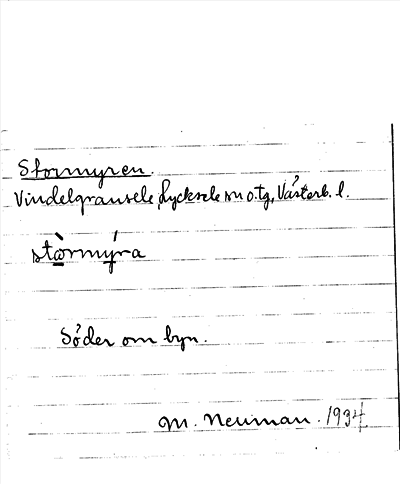 Stormyren.
Vindelgransele, Lycksele sn o. tg, Västerb. l.
stòrmýra
Söder om byn.
M. Neuman. 1934